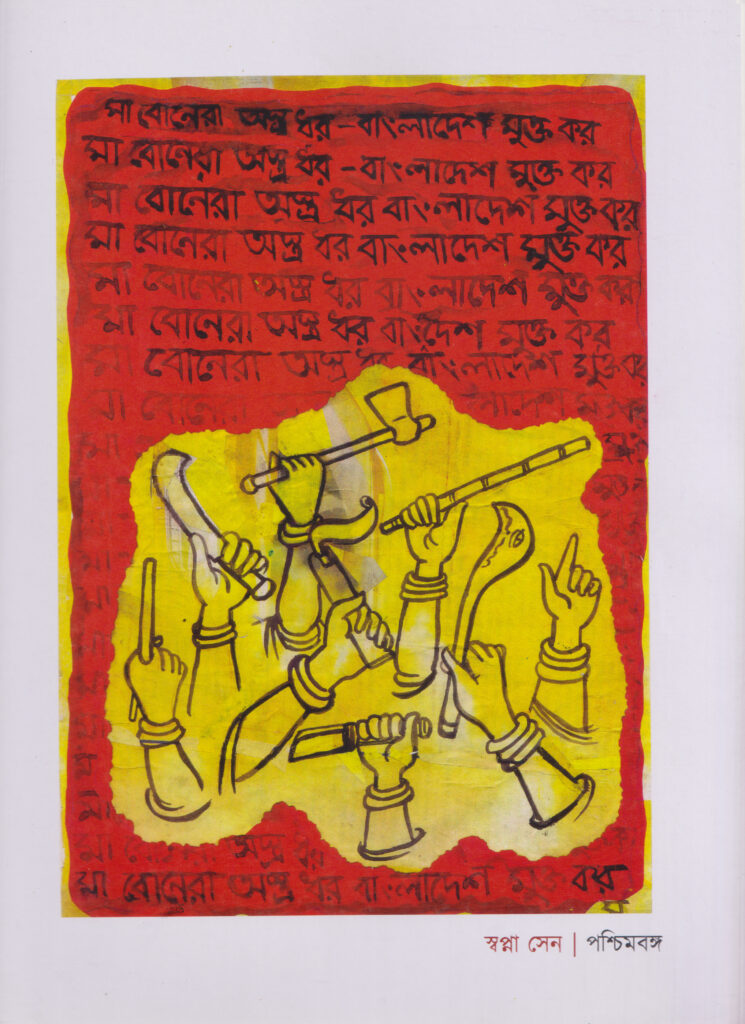 মা বোনেরা অস্ত্র ধর - বাংলাদেশ মুক্ত কর
মা বোনেরা অস্ত্র ধর - বাংলাদেশ মুক্ত কর
মা বোনেরা অস্ত্র ধর বাংলাদেশ মুক্ত কর
মা বোনেরা অস্ত্র ধর বাংলাদেশ মুক্ত কর
মা বোনেরা অস্ত্র ধর বাংলাদেশ মুক্ত কর
মা বোনেরা অস্ত্র ধর বাংদেশ মুক্ত কর
মা বোনেরা অস্ত্র ধর বাংলাদেশ মুক্ত কর
মা বোনেরা
মা
মা
মা
মা
মা
মা
মা
মা অস্ত্র ধর
মা বোনেরা অস্ত্র ধর বাংলাদেশ মুক্ত কর
স্বপ্না সেন | পশ্চিমবঙ্গ